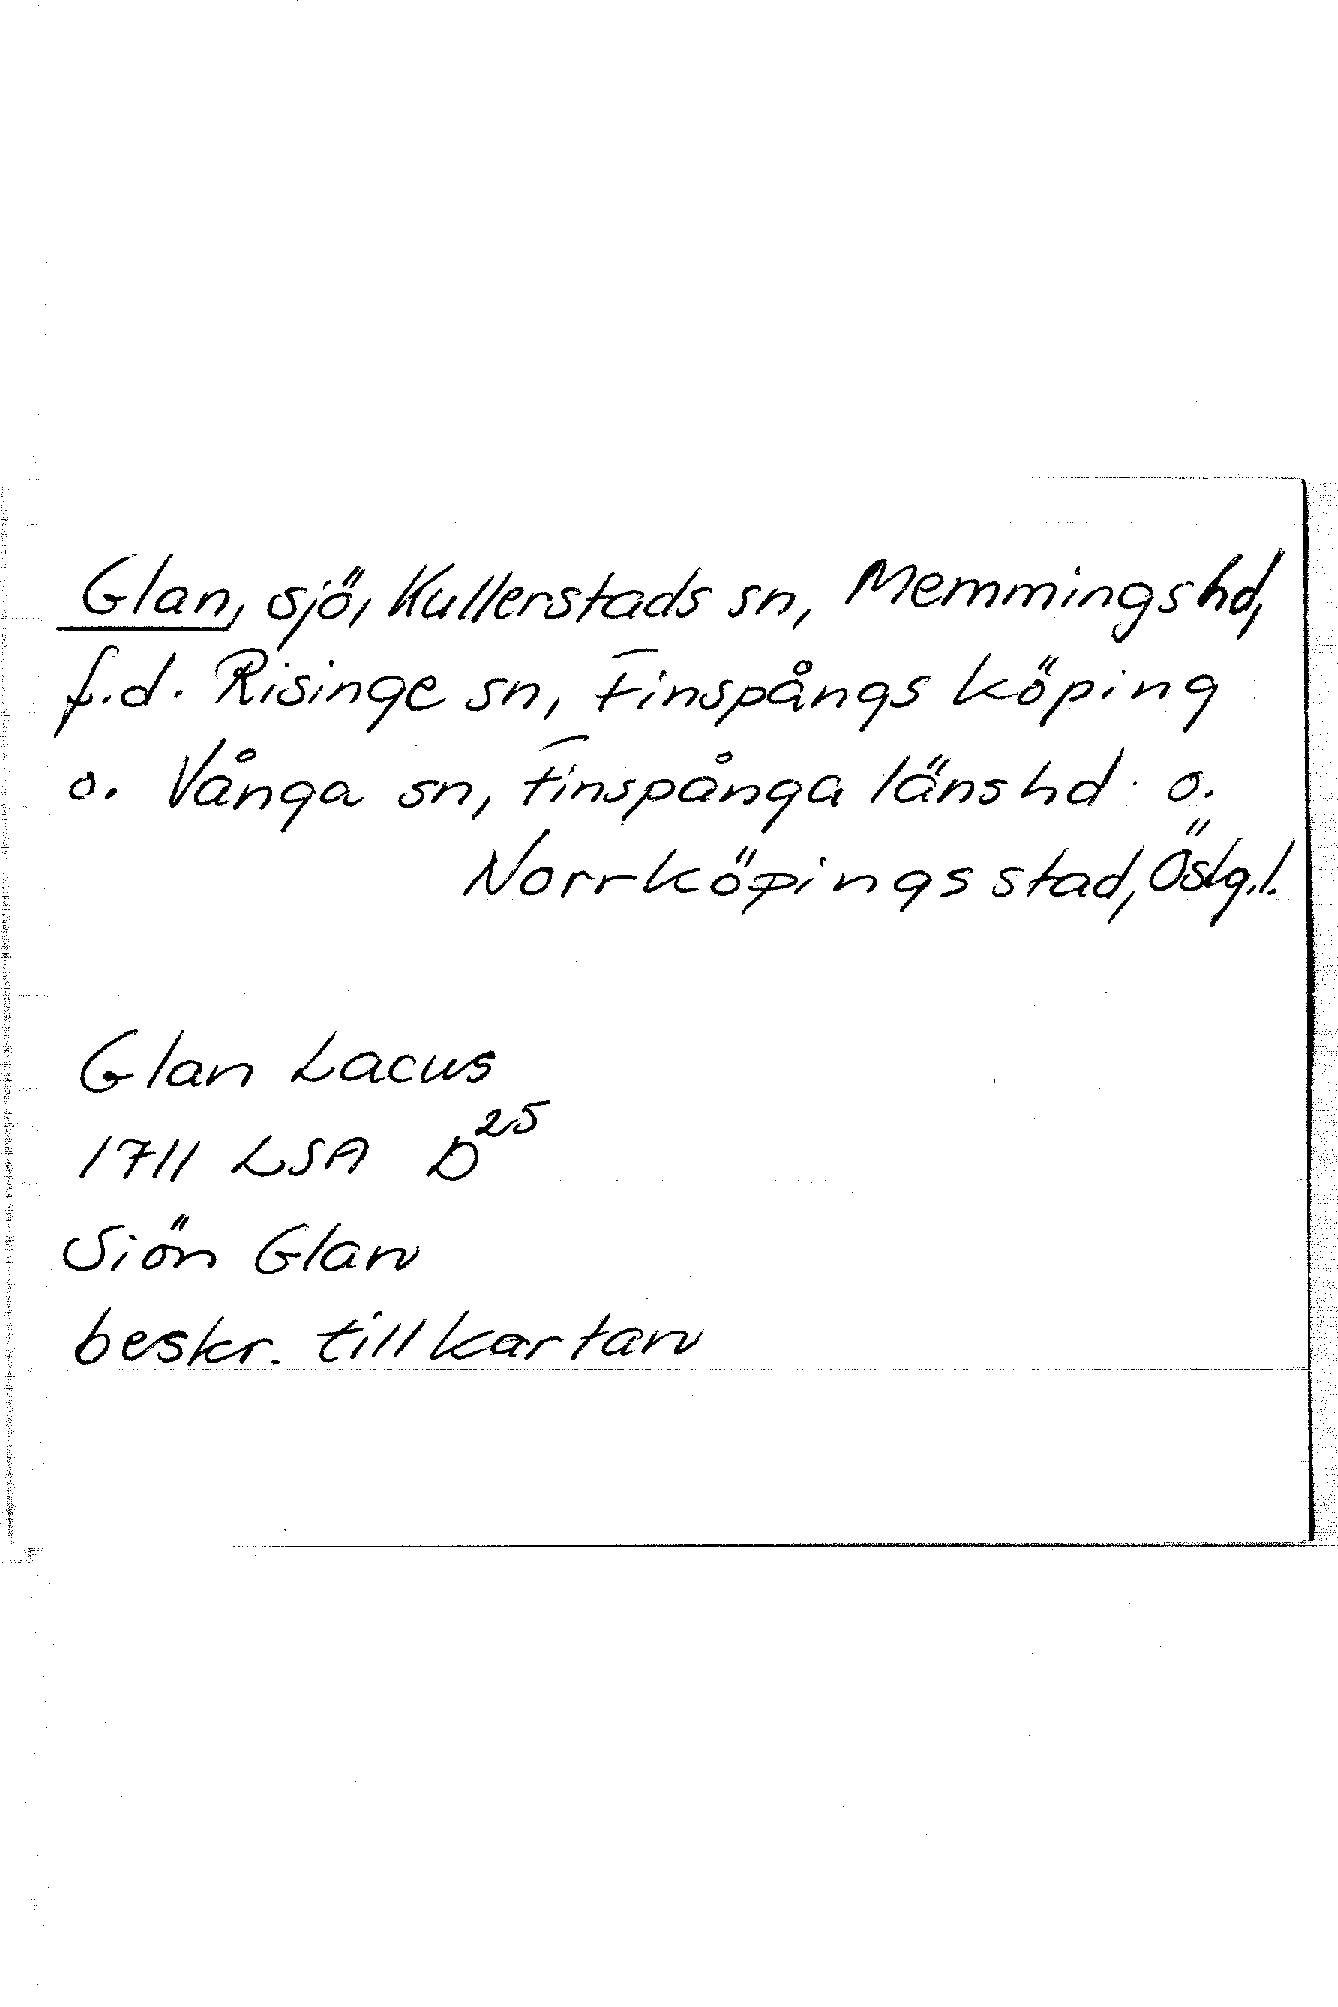 Glan, sjö, Kullerstads sn, Memmings hd,
f.d. Risinge sn, Finspångs köping
o. Vånga sn, Finspånga läns hd o.
Norrköpings stad, Östg.l.
Glan Lacus
1711 LSA D25
Siön Glan
beskr. till kartan